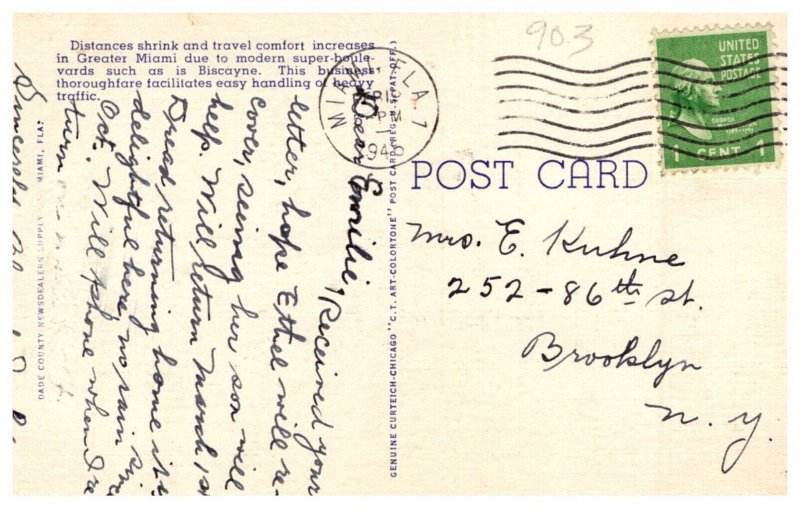 Distances shrink and travel comfort increases
in Greater Miami due to modern super-boule-
vards such as is Biscayne. This business
thoroughfare facilitates easy handling of heavy
traffic.
903
MIAMI FLA. 1
PM
1946
UNITED
STATES
POSTAGE
1 CENT 1
POST CARD
Mrs. E. Kuhne
252-86th st.
Brooklyn
N. Y.
Dear Emilie, Received your
letter, hope Ethel will re-
cover, seeing her son will
help. Will return March 1st
Dread returning home it is
delightful here, no rain since
Oct. Will phone when I re
turn
Sincerely
DADE COUNTY NEWSDEALERS SUPPLY MIAMI, FLA.
GENUINE CURTEICH-CHICAGO "C.T. ART-COLORTONE" POST CARD (REG. U.S. PAT. OFF.)